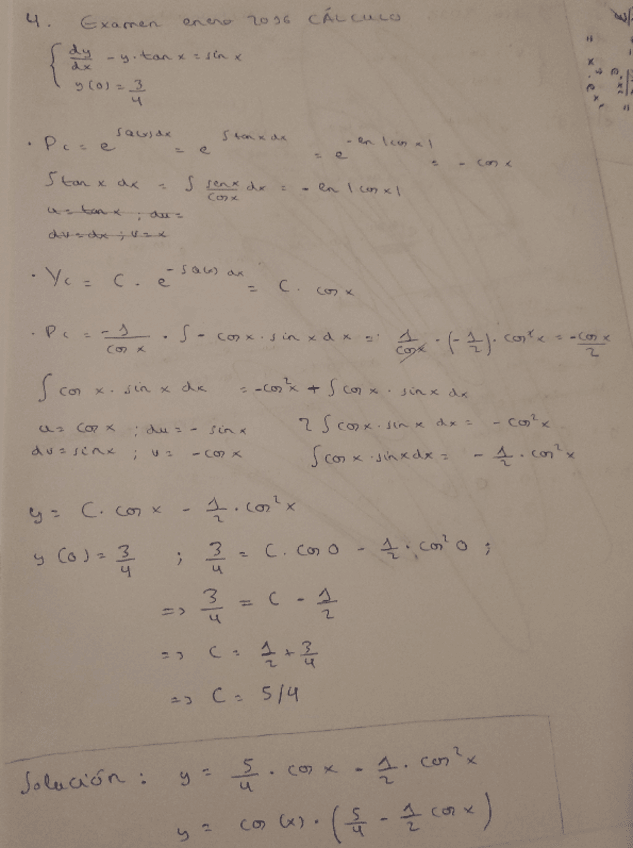 4. Examen enero 2036 CÁLCULO
{ dy/dx - y · tan x = sin x
y(0) = 3/4
· Pc = e^∫a(x)dx = e^∫tan x dx = e^-ln|cos x| = - cos x
∫ tan x dx = ∫ senx/cosx dx = - ln |cos x|
u = tan x ; du =
dv = dx ; v = x
· Yc = C · e^-∫a(x) dx = C · cos x
· Pc = -1/cos x · ∫ - cos x · sin x dx = 1/cos x · (-1/2) · cos²x = -cos x/2
∫ cos x · sin x dx = -cos²x + ∫ cos x · sin x dx
u = cos x ; du = - sin x 2 ∫ cos x · sin x dx = - cos²x
dv = sin x ; v = -cos x ∫ cos x · sin x dx = - 1/2 · cos²x
y = C · cos x - 1/2 · cos²x
y(0) = 3/4 ; 3/4 = C · cos 0 - 1/2 · cos²0 ;
=> 3/4 = C - 1/2
=> C = 1/2 + 3/4
=> C = 5/4
Solución : y = 5/4 · cos x - 1/2 · cos²x
y = cos (x) · (5/4 - 1/2 cos x)